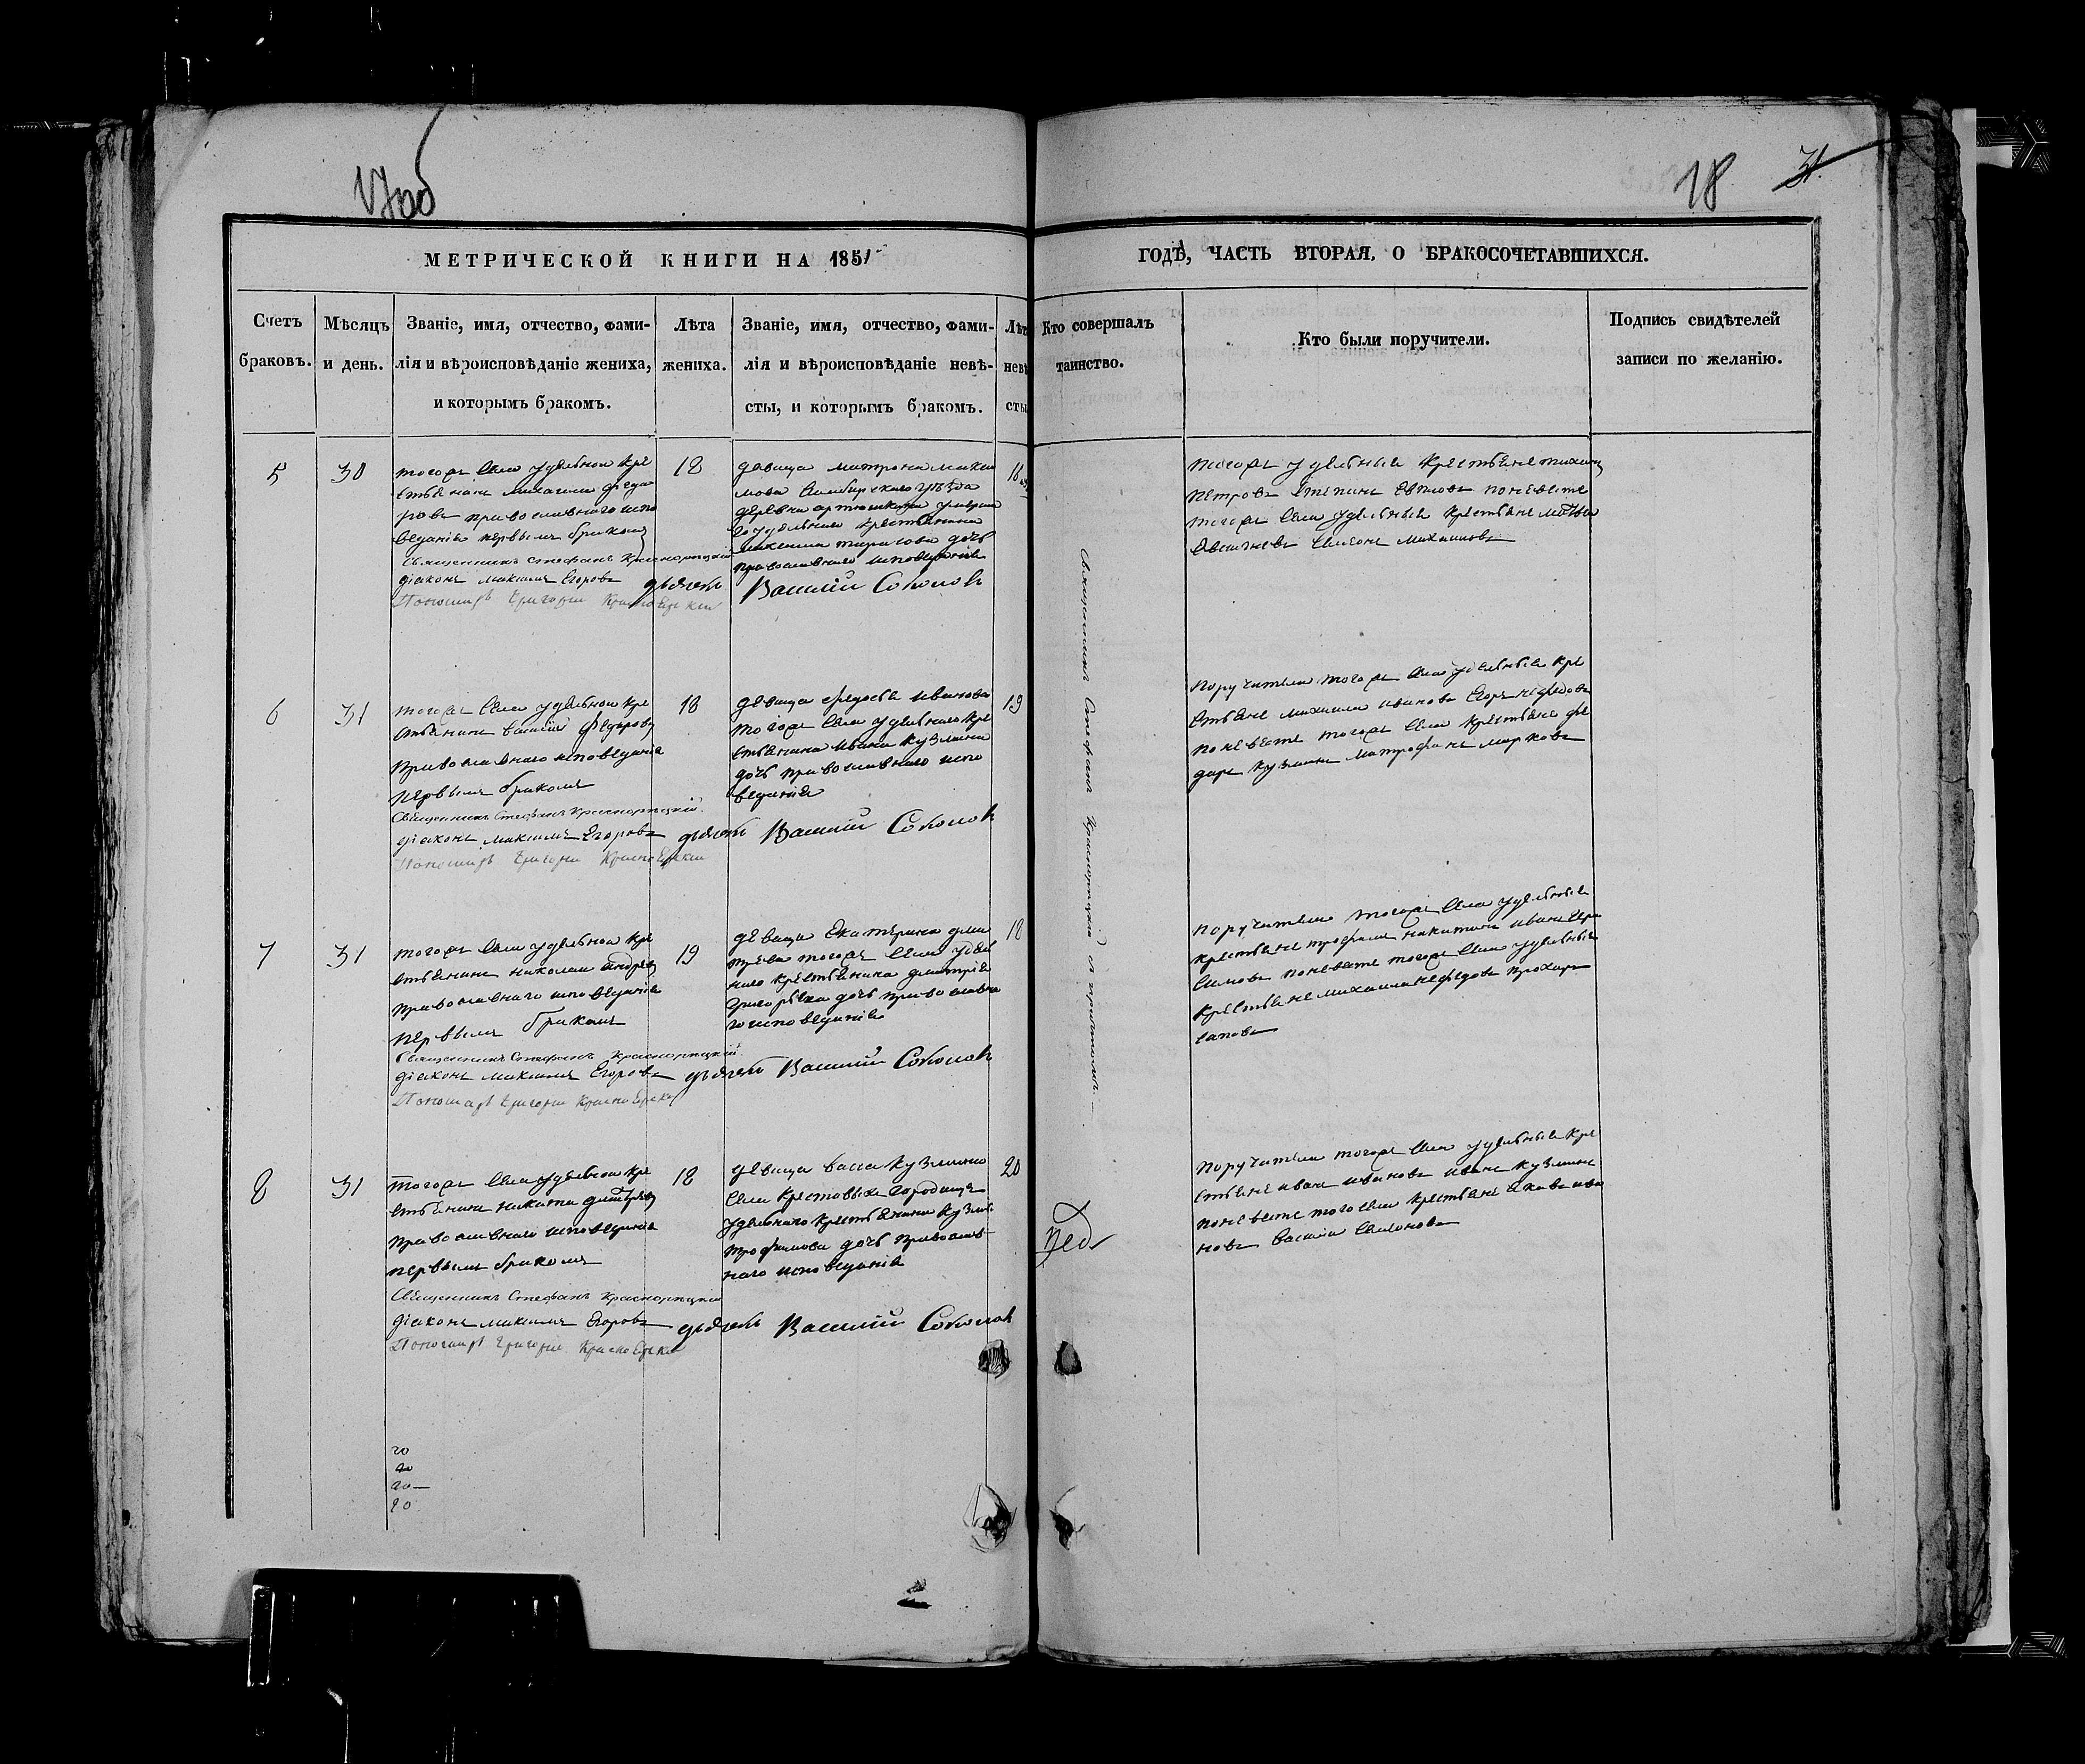 17об
18 31.
МЕТРИЧЕСКОЙ КНИГИ НА 1851
ГОДѢ, ЧАСТЬ ВТОРАЯ, О БРАКОСОЧЕТАВШИХСЯ.
Счетъ
браковъ.
Мѣсяцъ
и день.
Званіе, имя, отчество, фами-
лія и вѣроисповѣданіе жениха,
и которымъ бракомъ.
Лѣта
жениха.
Званіе, имя, отчество, фами-
лія и вѣроисповѣданіе невѣ-
сты, и которымъ бракомъ.
Лѣт
невѣ
сты
Кто совершалъ
таинство.
Кто были поручители.
Подпись свидѣтелей
записи по желанію.
5
30
тогожъ села удѣльной кре
стьянинъ михаилъ федо
ровъ православнаго испо
веданія первымъ бракомъ
Священникъ Стефанъ Красноряцкій
діаконъ максимъ Егоровъ
Пономарь Григорій
18
девица матрона макси
мова Симбирскаго уѣзда
деревни
удельнаго крестьянина
максима тарасова дочь
православнаго исповеданія
дьячекъ Василій Соколовъ
18
тогожъ удельныя крестьяне тихонъ
петровъ степанъ поневесте
тогожъ села удельныя крестьяне
Семенъ
6
31
тогожъ села удѣльной кре
стьянинъ василій Федоровъ
православнаго исповеданія
первымъ бракомъ
Священникъ Стефанъ Красноряцкій
діаконъ максимъ Егоровъ
Пономарь Григорій
18
девица федосья иванова
тогожъ села удельнаго кре
стьянина ивана кузмина
дочь православнаго испо
веданія
дьячекъ Василій Соколовъ
19
Поручители тогожъ села удельныя кре
стьяне михаила ивановъ Егоръ нефедовъ
поневесте тогожъ села крестьяне фе
доръ кузминъ митрофанъ марковъ
7
31
тогожъ села удѣльной кре
стьянинъ николай андреевъ
православнаго исповеданія
первымъ бракомъ
Священникъ Стефанъ Красноряцкій
діаконъ максимъ Егоровъ
Пономарь Григорій
19
девица Екатерина дми
трева тогожъ села удель
наго крестьянина дмитрія
григорьева дочь православна
го исповеданія
дьячекъ Василій Соколовъ
18
поручители тогожъ села удельныя
крестьяне трофимъ никитинъ иванъ гера
симовъ поневесте тогожъ села удельныя
крестьяне михаила нефедовъ прохоръ
8
31
тогожъ села удѣльной кре
стьянинъ никита дмитревъ
православнаго исповеданія
первымъ бракомъ
Священникъ Стефанъ Красноряцкій
діаконъ максимъ Егоровъ
Пономарь Григорій
18
девица васса кузмина
села крестовыхъ городищъ
удельнаго крестьянина кузмы
трофимова дочь православ
наго исповеданія
дьячекъ Василій Соколовъ
20
поручители тогожъ села удельныя кре
стьяне иванъ ивановъ иванъ кузминъ
поневесте тогосела крестьяне яковъ ива
новъ василій Семеновъ
Священникъ Стефанъ Красноряцкій съ причтомъ.
20
20
20
20